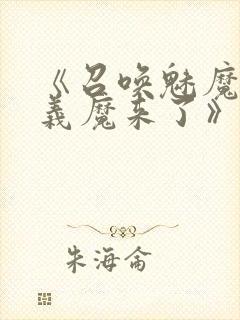 《召唤魅魔
义魔来了》
朱海仑